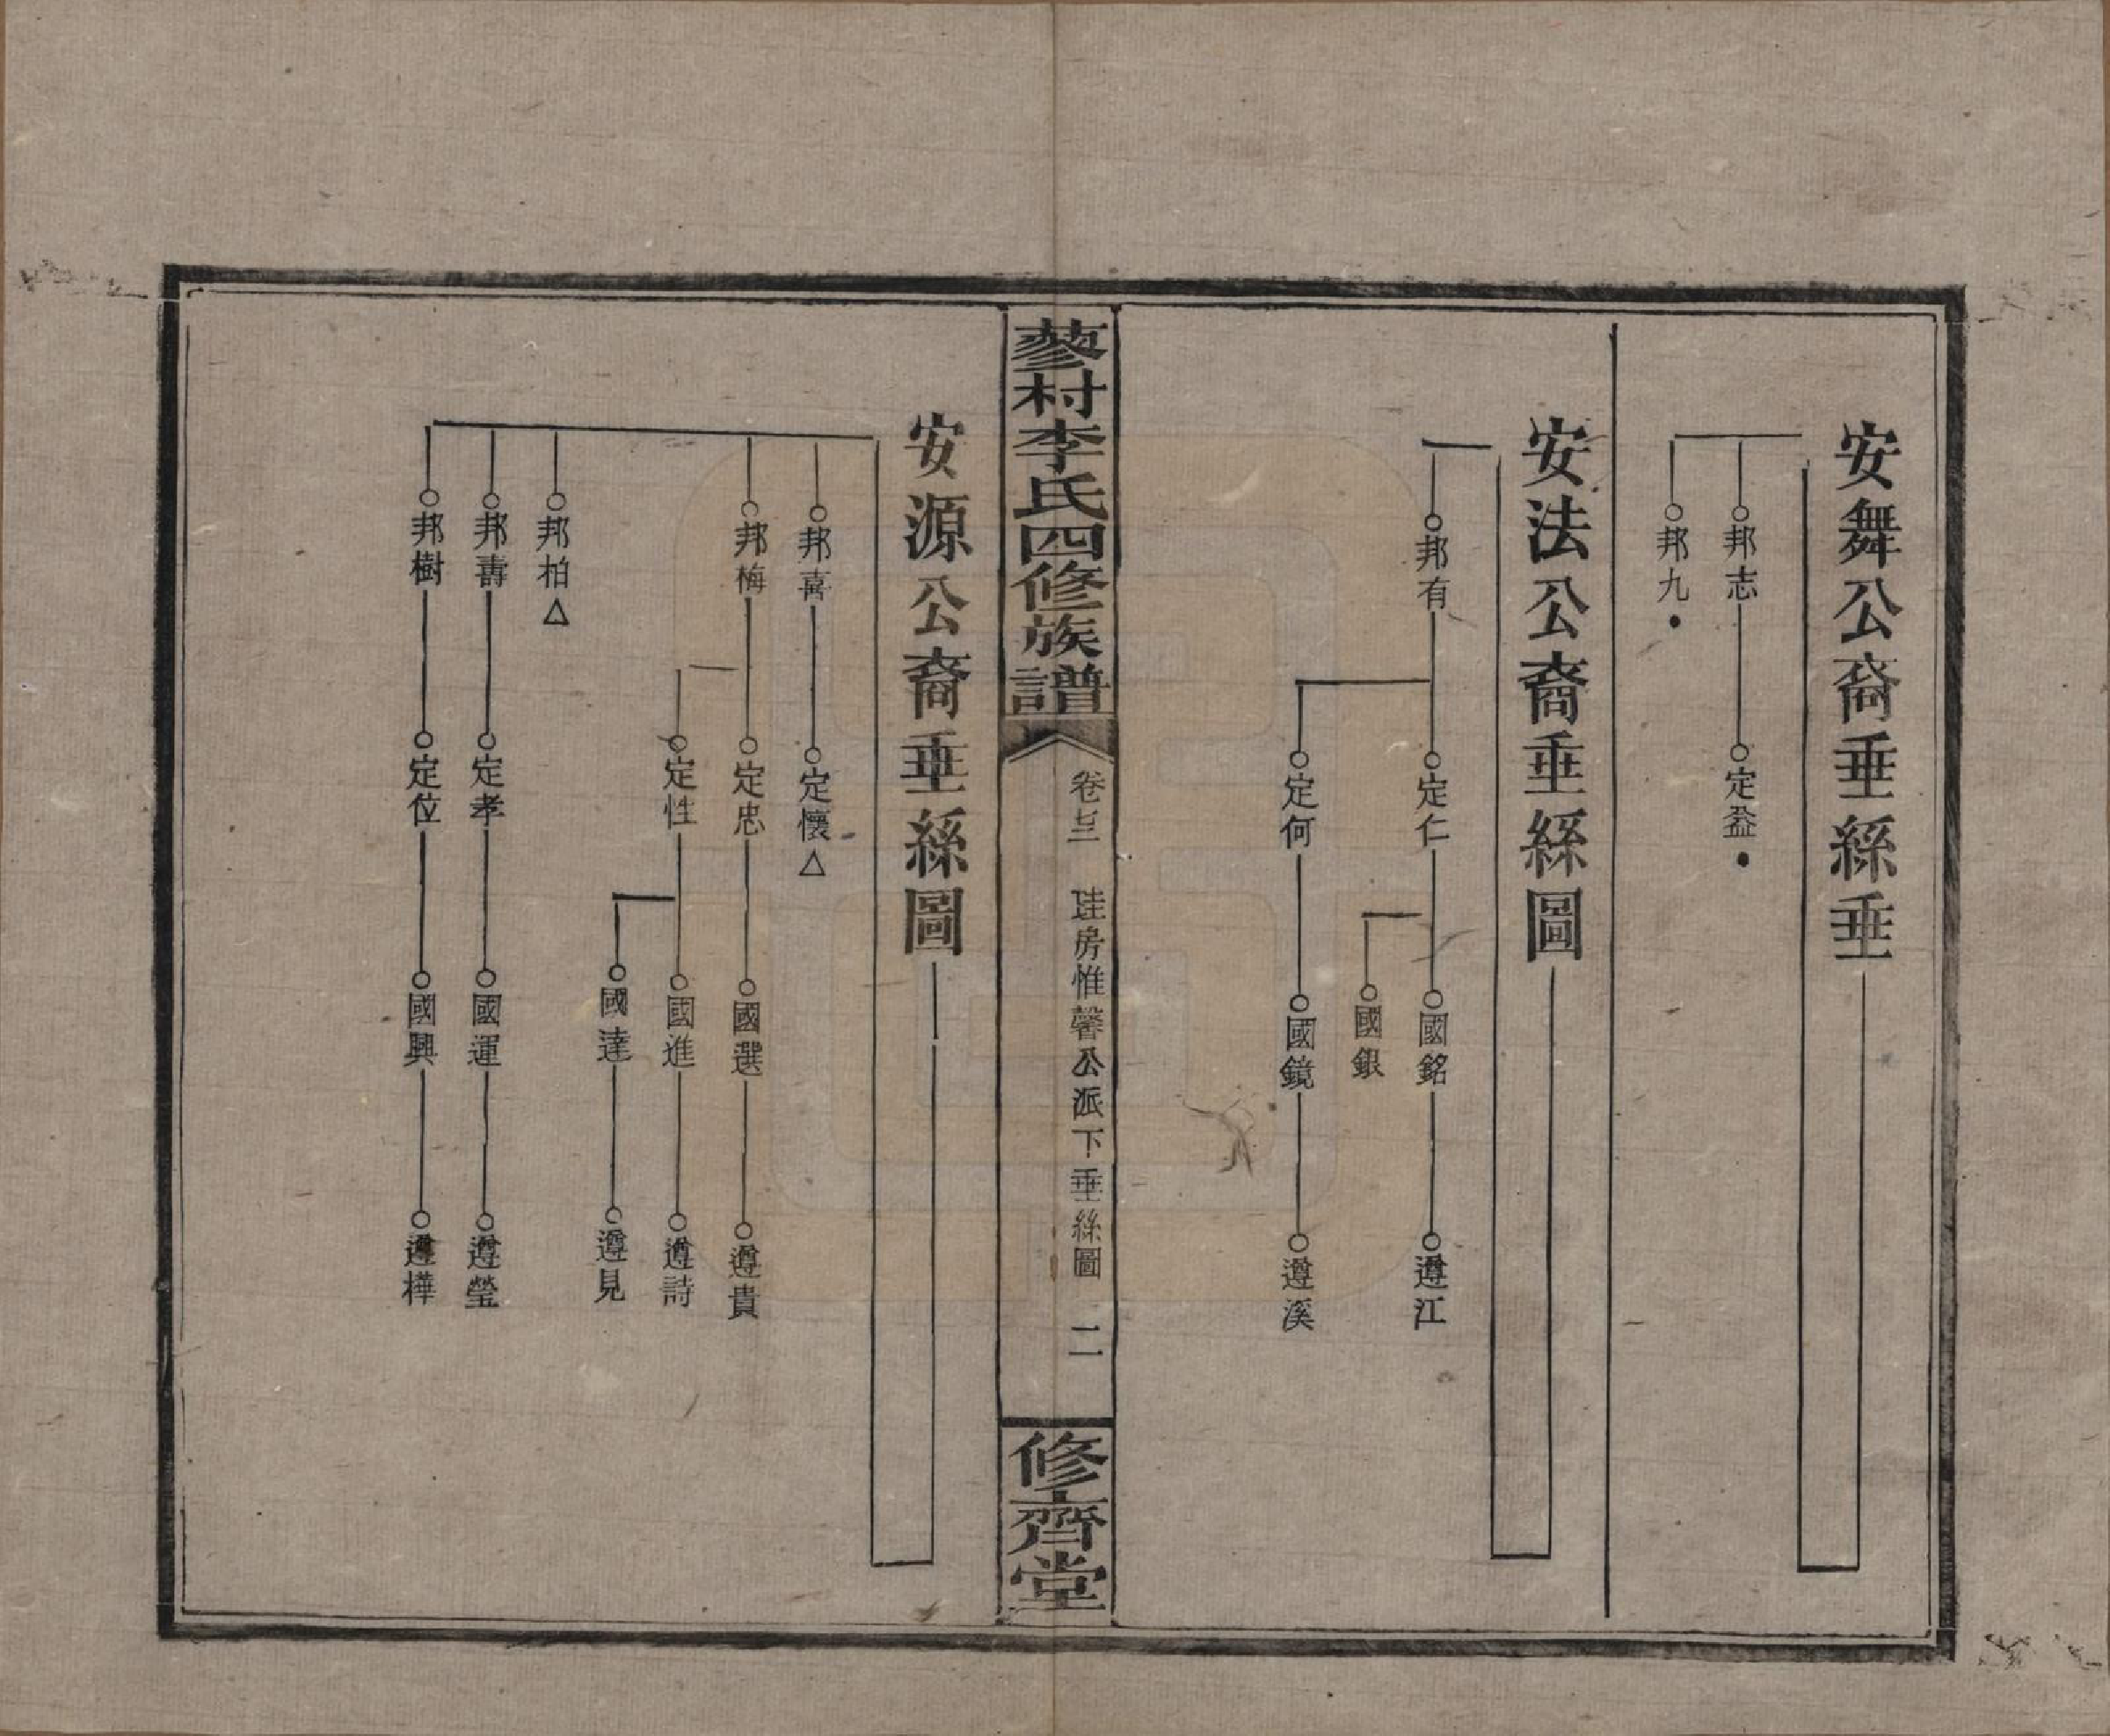 安舞公裔垂絲垂
邦志
定益
邦九
安法公裔垂絲圖
邦有
定仁
國銘
遵江
國銀
定何
國鏡
遵溪
蓼村李氏四修族譜
卷 房惟馨公派下垂絲圖 二
修齊堂
安源公裔垂絲圖
邦喜
定懷
邦梅
定忠
國選
遵貴
定性
國進
遵詩
國達
遵見
邦柏
邦壽
定孝
國運
遵瑩
邦樹
定位
國興
遵樺